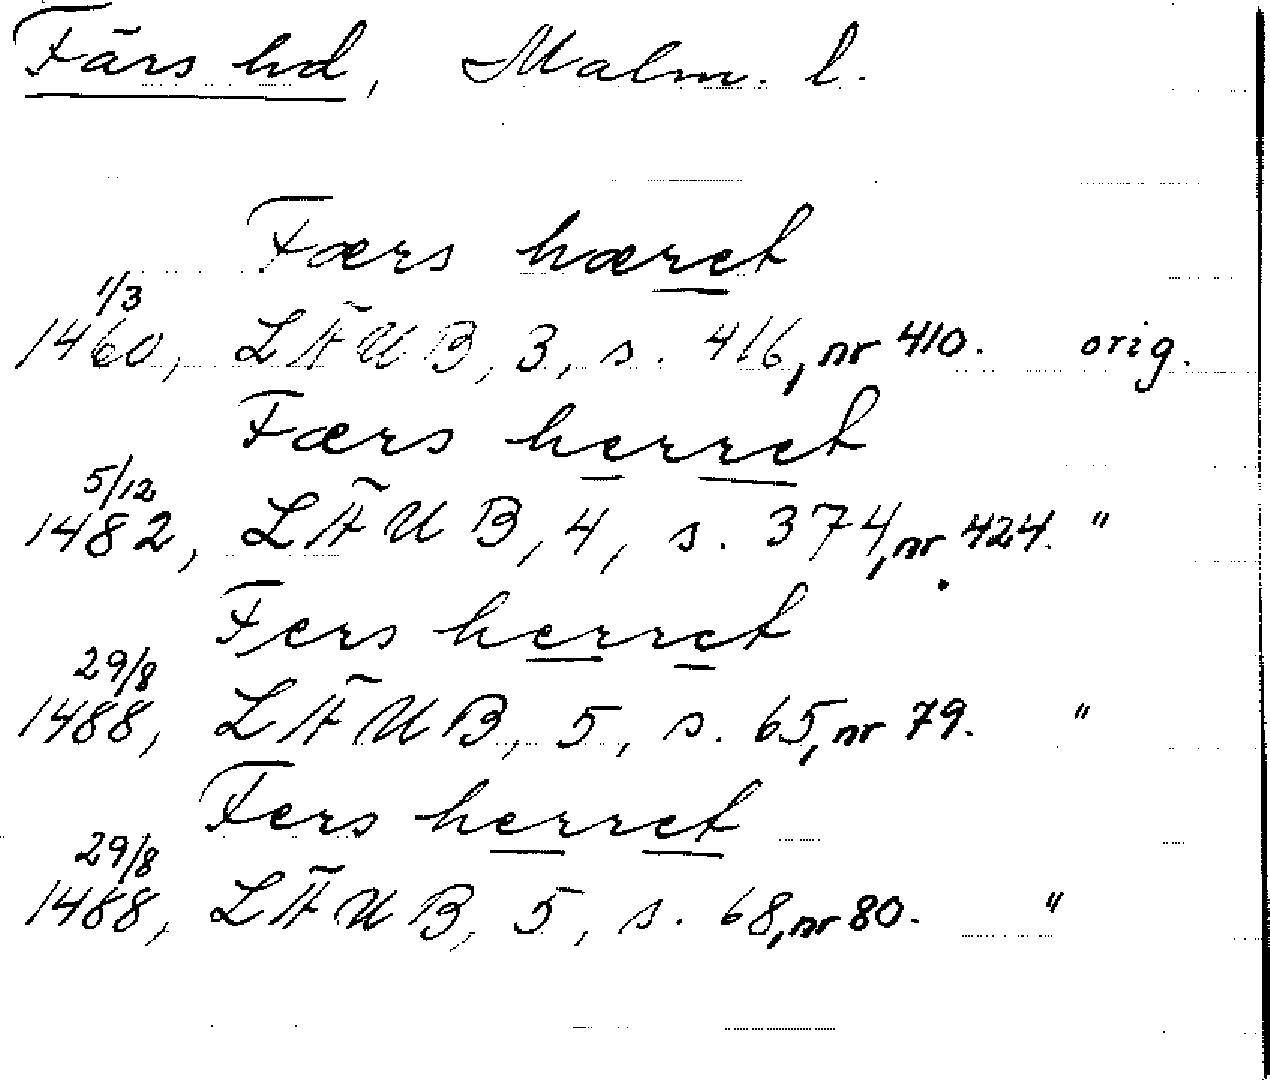 Färs hd, Malm. l.
Færs hæret
1/3
1460, LÄUB, 3, s. 416, nr 410. orig.
Færs herret
5/12
1482, LÄUB, 4, s. 374, nr 424. "
Fers herret
29/8
1488, LÄUB, 5, s. 65, nr 79. "
Fers herret
29/8
1488, LÄUB, 5, s. 68, nr 80. "